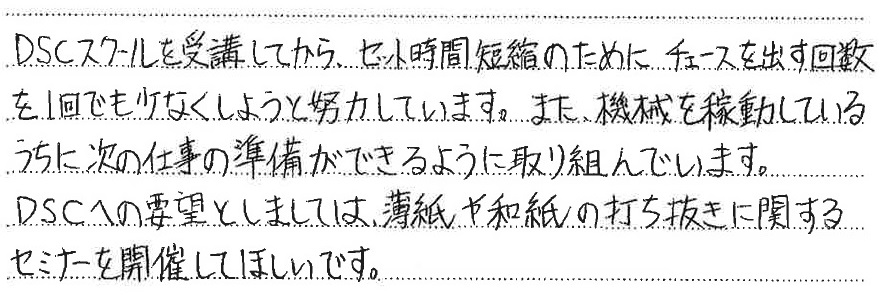 DSCスクールを受講してから、セット時間短縮のために チェースを出す回数
を1回でも少なくしようと努力しています。また、機械を稼動している
うちに次の仕事の準備ができるように取り組んでいます。
DSCへの要望としましては、薄紙や和紙の打ち抜きに関する
セミナーを開催してほしいです。